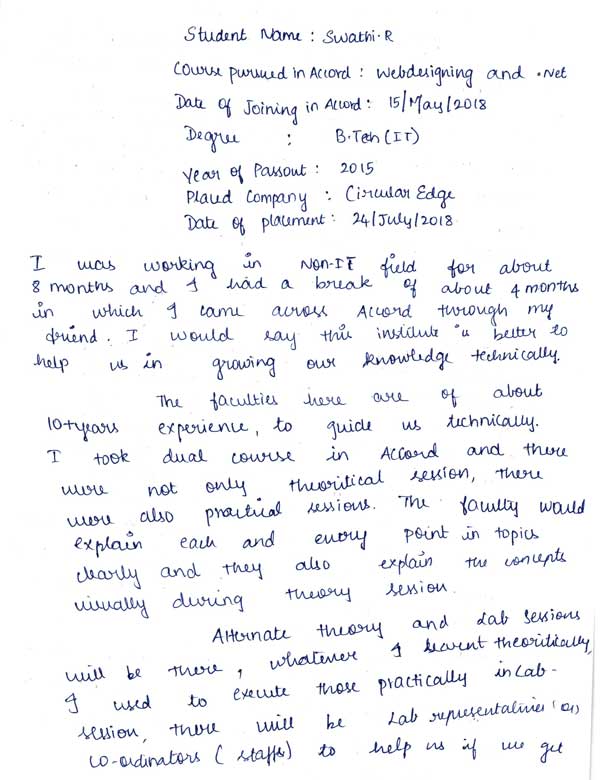 Student Name : Swathi.R
Course pursued in Accord : Webdesigning and .Net
Date of Joining in Accord : 15/May/2018
Degree : B.Tech (IT)
Year of Passout : 2015
Placed Company : Circular Edge
Date of placement : 24/July/2018
I was working in Non-IT field for about
8 months and I had a break of about 4 months
in which I came across Accord through my
friend. I would say this institute is better to
help us in growing our knowledge technically.
The faculties here are of about
10+years experience, to guide us technically.
I took dual course in Accord and there
were not only theoritical session, there
were also practical sessions. The faculty would
explain each and every point in topics
clearly and they also explain the concepts
visually during theory session.
Alternate theory and Lab sessions
will be there, whatever I learnt theoritically,
I used to execute those practically in Lab-
session, there will be Lab representatives (or)
co-ordinators ( staffs) to help us if we get